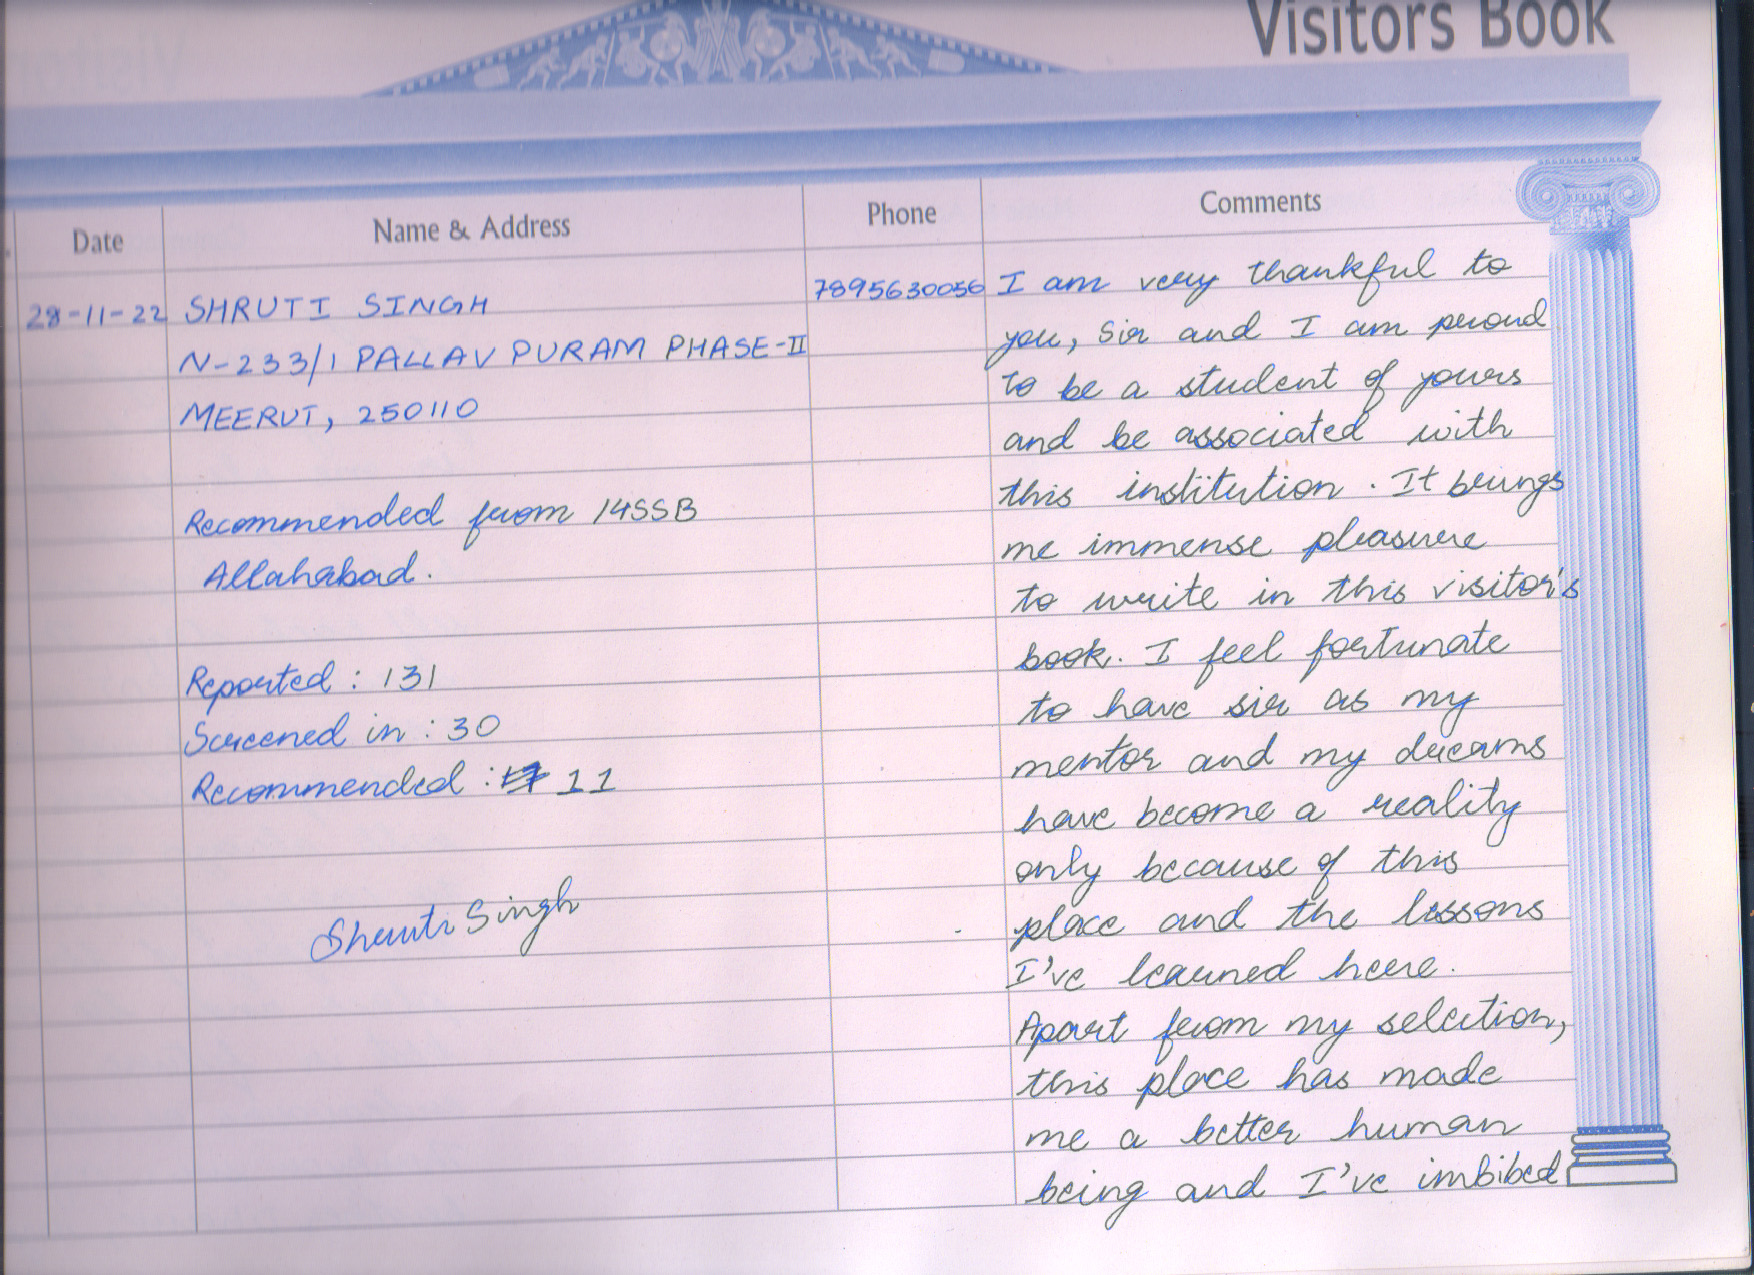 Visitors Book
Date
Name & Address
Phone
Comments
28-11-22
SHRUTI SINGH
N-233/1 PALLAV PURAM PHASE-II
MEERUT, 250110
Recommended from 14SSB
Allahabad.
Reported : 131
Screened in : 30
Recommended : 11
Shruti Singh
7895630056
I am very thankful to
you, Sir and I am proud
to be a student of yours
and be associated with
this institution. It brings
me immense pleasure
to write in this visitor's
book. I feel fortunate
to have sir as my
mentor and my dreams
have become a reality
only because of this
place and the lessons
I've learned here.
Apart from my selection,
this place has made
me a better human
being and I've imbibed